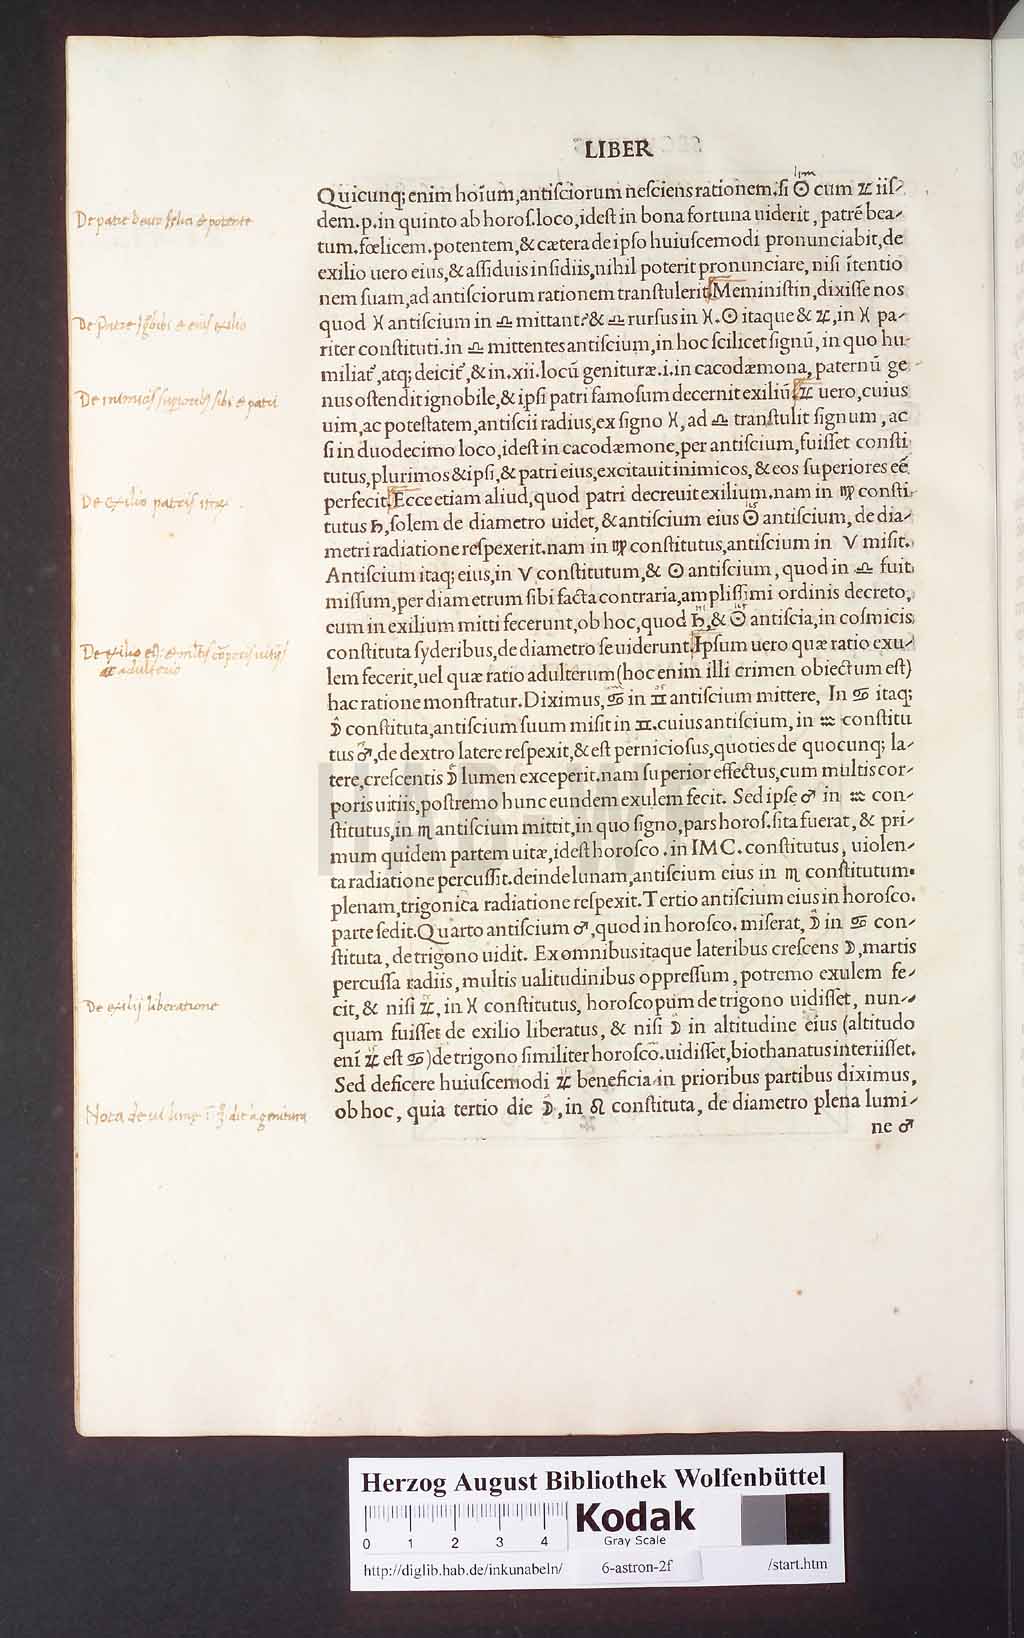 LIBER
Quicunq; enim hoīum, antisciorum nesciens rationem. si ☉ cum ♃ iis-
dem. p. in quinto ab horos. loco, idest in bona fortuna uiderit, patrē bea-
tum. fœlicem. potentem, & cætera de ipso huiuscemodi pronunciabit, de
exilio uero eius, & assiduis insidiis, nihil poterit pronunciare, nisi ītentio
nem suam, ad antisciorum rationem transtulerit. Meministin, dixisse nos
quod ♓ antiscium in ♎ mittant? & ♎ rursus in ♓. ☉ itaque & ♃, in ♓ pa-
riter constituti. in ♎ mittentes antiscium, in hoc scilicet signū, in quo hu-
miliat, atq; deicit, & in. xii. locū genituræ. i. in cacodæmona, paternū ge
nus ostendit ignobile, & ipsi patri famosum decernit exiliū. ♃ uero, cuius
uim, ac potestatem, antiscii radius, ex signo ♓, ad ♎ transtulit signum, ac
si in duodecimo loco, idest in cacodæmone, per antiscium, fuisset consti
tutus, plurimos & ipsi, & patri eius, excitauit inimicos, & eos superiores eē
perfecit. Ecce etiam aliud, quod patri decreuit exilium. nam in ♍ consti-
tutus ♄, solem de diametro uidet, & antiscium eius ☉ antiscium, de dia-
metri radiatione respexerit. nam in ♍ constitutus, antiscium in ♈ misit.
Antiscium itaq; eius, in ♈ constitutum, & ☉ antiscium, quod in ♎ fuit
missum, per diametrum sibi facta contraria, amplissimi ordinis decreto,
eum in exilium mitti fecerunt, ob hoc, quod ♄, & ☉ antiscia, in cosmicis
constituta syderibus, de diametro se uiderunt. Ipsum uero quæ ratio exu-
lem fecerit, uel quæ ratio adulterum (hoc enim illi crimen obiectum est)
hac ratione monstratur. Diximus, ♋ in ♊ antiscium mittere, In ♋ itaq;
☽ constituta, antiscium suum misit in ♊. cuius antiscium, in ♒ constitu
tus ♂, de dextro latere respexit, & est perniciosus, quoties de quocunq; la-
tere, crescentis ☽ lumen exceperit. nam superior effectus, cum multis cor-
poris uitiis, postremo hunc eundem exulem fecit. Sed ipse ♂ in ♒ con-
stitutus, in ♏ antiscium mittit, in quo signo, pars horos. sita fuerat, & pri-
mum quidem partem uitæ, idest horosco. in IMC. constitutus, uiolen-
ta radiatione percussit. deinde lunam, antiscium eius in ♏ constitutum.
plenam, trigonica radiatione respexit. Tertio antiscium eius in horosco.
parte sedit. Quarto antiscium ♂, quod in horosco. miserat, ☽ in ♋ con-
stituta, de trigono uidit. Ex omnibus itaque lateribus crescens ☽, martis
percussa radiis, multis ualitudinibus oppressum, potremo exulem fe-
cit, & nisi ♃, in ♓ constitutus, horoscopum de trigono uidisset, nun-
quam fuisset de exilio liberatus, & nisi ☽ in altitudine eius (altitudo
enī ♃ est ♋) de trigono similiter horosco. uidisset, biothanatus interiisset.
Sed deficere huiuscemodi ♃ beneficia in prioribus partibus diximus,
ob hoc, quia tertio die ☽, in ♌ constituta, de diametro plena lumi-
ne ♂
De patre
felici & potente
De Patre
& eius exilio
De inimicis superioribus sibi & patri
De exilio patris
De exilio
& multis corporis uitiis
ac adulterio
De exilij liberatione
Nota de
genitura
Herzog August Bibliothek Wolfenbüttel
0 1 2 3 4
Kodak
Gray Scale
http://diglib.hab.de/inkunabeln/ 6-astron-2f /start.htm
HAB-WF